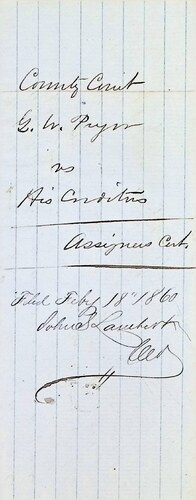 County Court
G. W. Pryor
vs
His Creditors
Assignees Certs
Filed Feby 18th 1860
John S Lambert
Clk